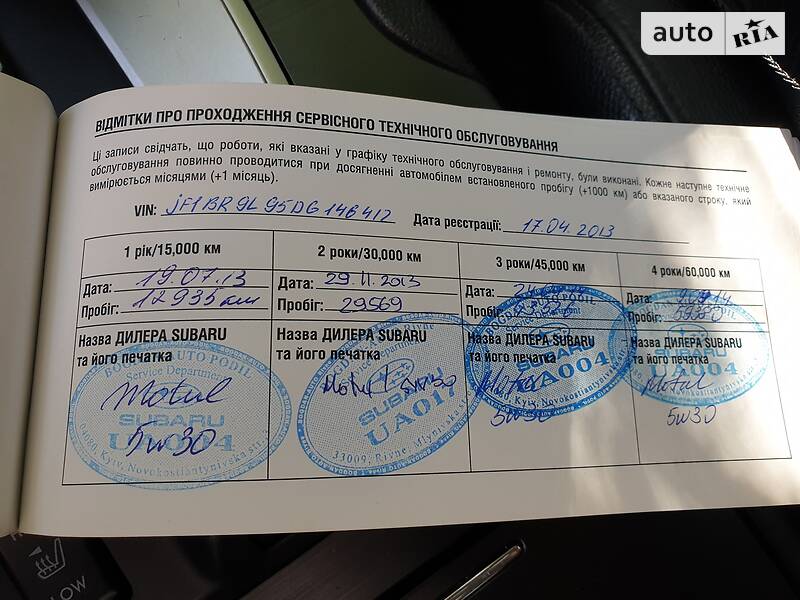 auto RIA
ВІДМІТКИ ПРО ПРОХОДЖЕННЯ СЕРВІСНОГО ТЕХНІЧНОГО ОБСЛУГОВУВАННЯ
Ці записи свідчать, що роботи, які вказані у графіку технічного обслуговування і ремонту, були виконані. Кожне наступне технічне
обслуговування повинно проводитися при досягненні автомобілем встановленого пробігу (+1000 км) або вказаного строку, який
вимірюється місяцями (+1 місяць).
VIN: jF1BR9L95DG146412 Дата реєстрації: 17.04.2013
1 рік/15,000 км 2 роки/30,000 км 3 роки/45,000 км 4 роки/60,000 км
Дата: 19.07.13 Дата: 29.11.2013 Дата: Дата:
Пробіг: 12935 км Пробіг: 29569 Пробіг: Пробіг: 59380
Назва ДИЛЕРА SUBARU Назва ДИЛЕРА SUBARU Назва ДИЛЕРА SUBARU Назва ДИЛЕРА SUBARU
та його печатка та його печатка та його печатка та його печатка
BOGDAN AUTO PODIL
Service Department
Motul
SUBARU
UA004
5w30
04080, Kyiv, Novokostiantynivska str.
Rivne
Motul 5w30
SUBARU
UA017
33009, Rivne, Mlynivska str.
BOGDAN AUTO PODIL
Service Department
SUBARU
Motul
UA004
Kyiv, Novokostiantynivska
5w30
SUBARU
UA004
Motul
Kyiv, Novokostiantynivska
5w30
LOW